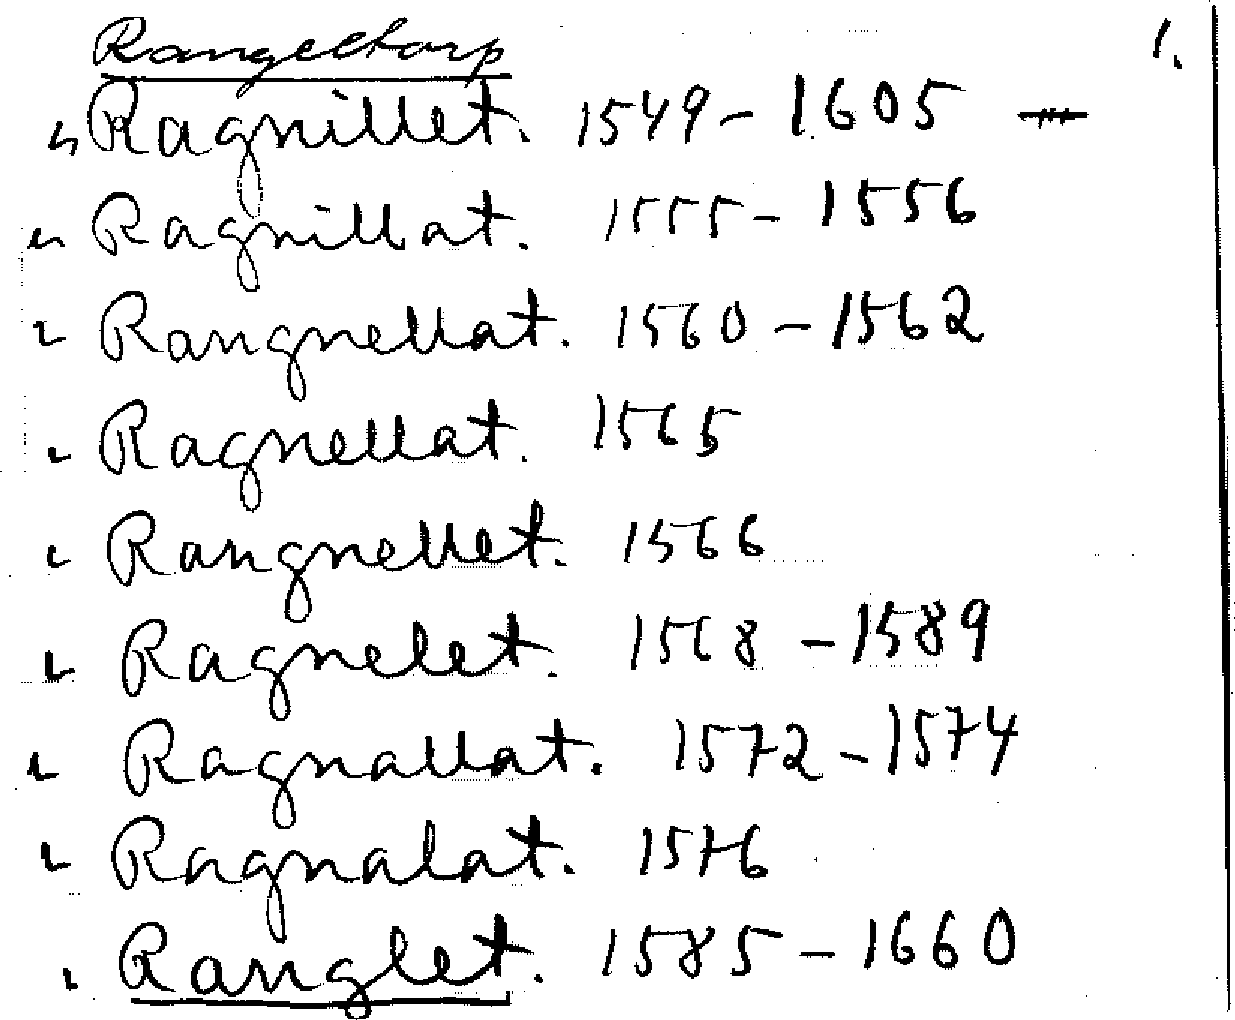 Rangeltorp 1.
" Ragnillet. 1549 - 1605 -
" Ragnillat. 1555 - 1556
" Rangnellat. 1560 - 1562
" Ragnellat. 1565
" Rangnellet. 1566
" Ragnelet. 1568 - 1589
" Ragnallat. 1572 - 1574
" Ragnalat. 1576
" Ranglet. 1585 - 1660